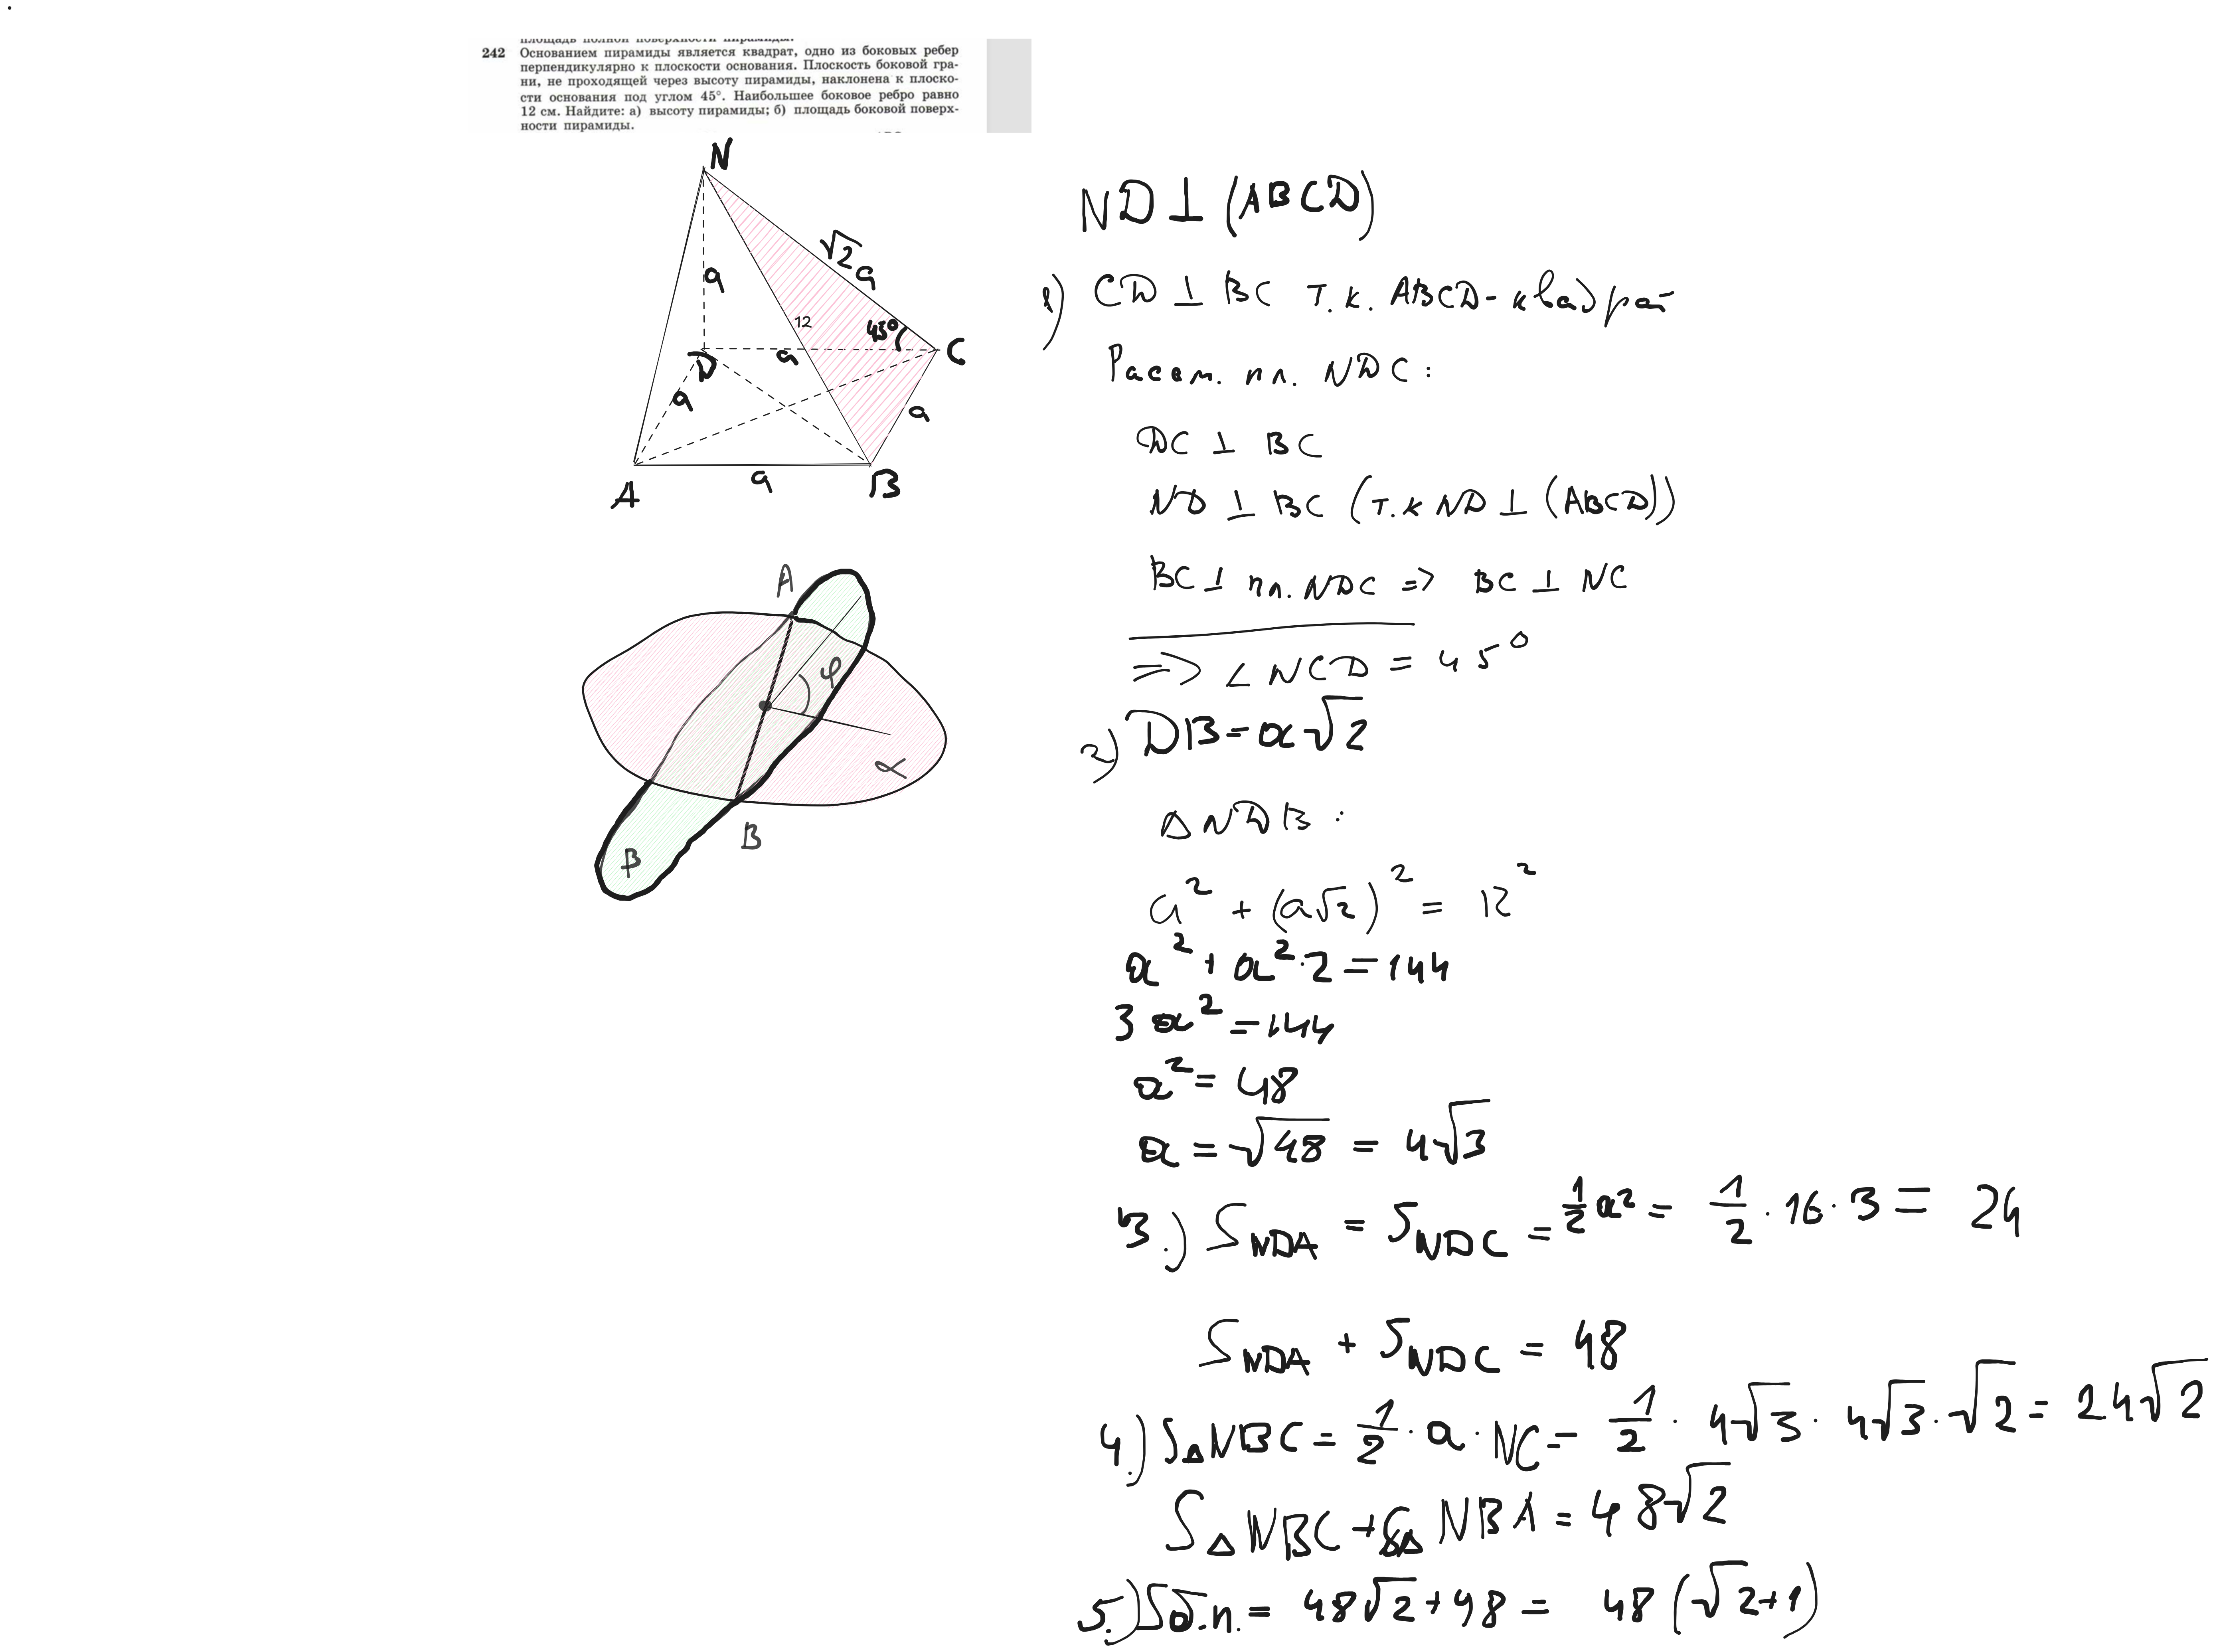 площадь полной поверхности пирамиды.
242 Основанием пирамиды является квадрат, одно из боковых ребер
перпендикулярно к плоскости основания. Плоскость боковой гра-
ни, не проходящей через высоту пирамиды, наклонена к плоско-
сти основания под углом 45°. Наибольшее боковое ребро равно
12 см. Найдите: а) высоту пирамиды; б) площадь боковой поверх-
ности пирамиды.
N
√2 a
a
12
45°
D
a
C
a
a
A
a
B
A
φ
α
B
β
ND ⊥ (ABCD)
1) CD ⊥ BC т.к. ABCD - квадрат
Рассм. пл. NDC:
DC ⊥ BC
ND ⊥ BC (т.к ND ⊥ (ABCD))
BC ⊥ пл. NDC => BC ⊥ NC
=> ∠ NCD = 45°
2) DB = a√2
Δ NDB:
a² + (a√2)² = 12²
a² + a²·2 = 144
3a² = 144
a² = 48
a = √48 = 4√3
3.) S NDA = S NDC = 1/2 a² = 1/2 · 16 · 3 = 24
S NDA + S NDC = 48
4.) SΔNBC = 1/2 · a · NC = 1/2 · 4√3 · 4√3 · √2 = 24√2
SΔNBC + SΔNBA = 48√2
5.) Sб.п. = 48√2 + 48 = 48(√2+1)